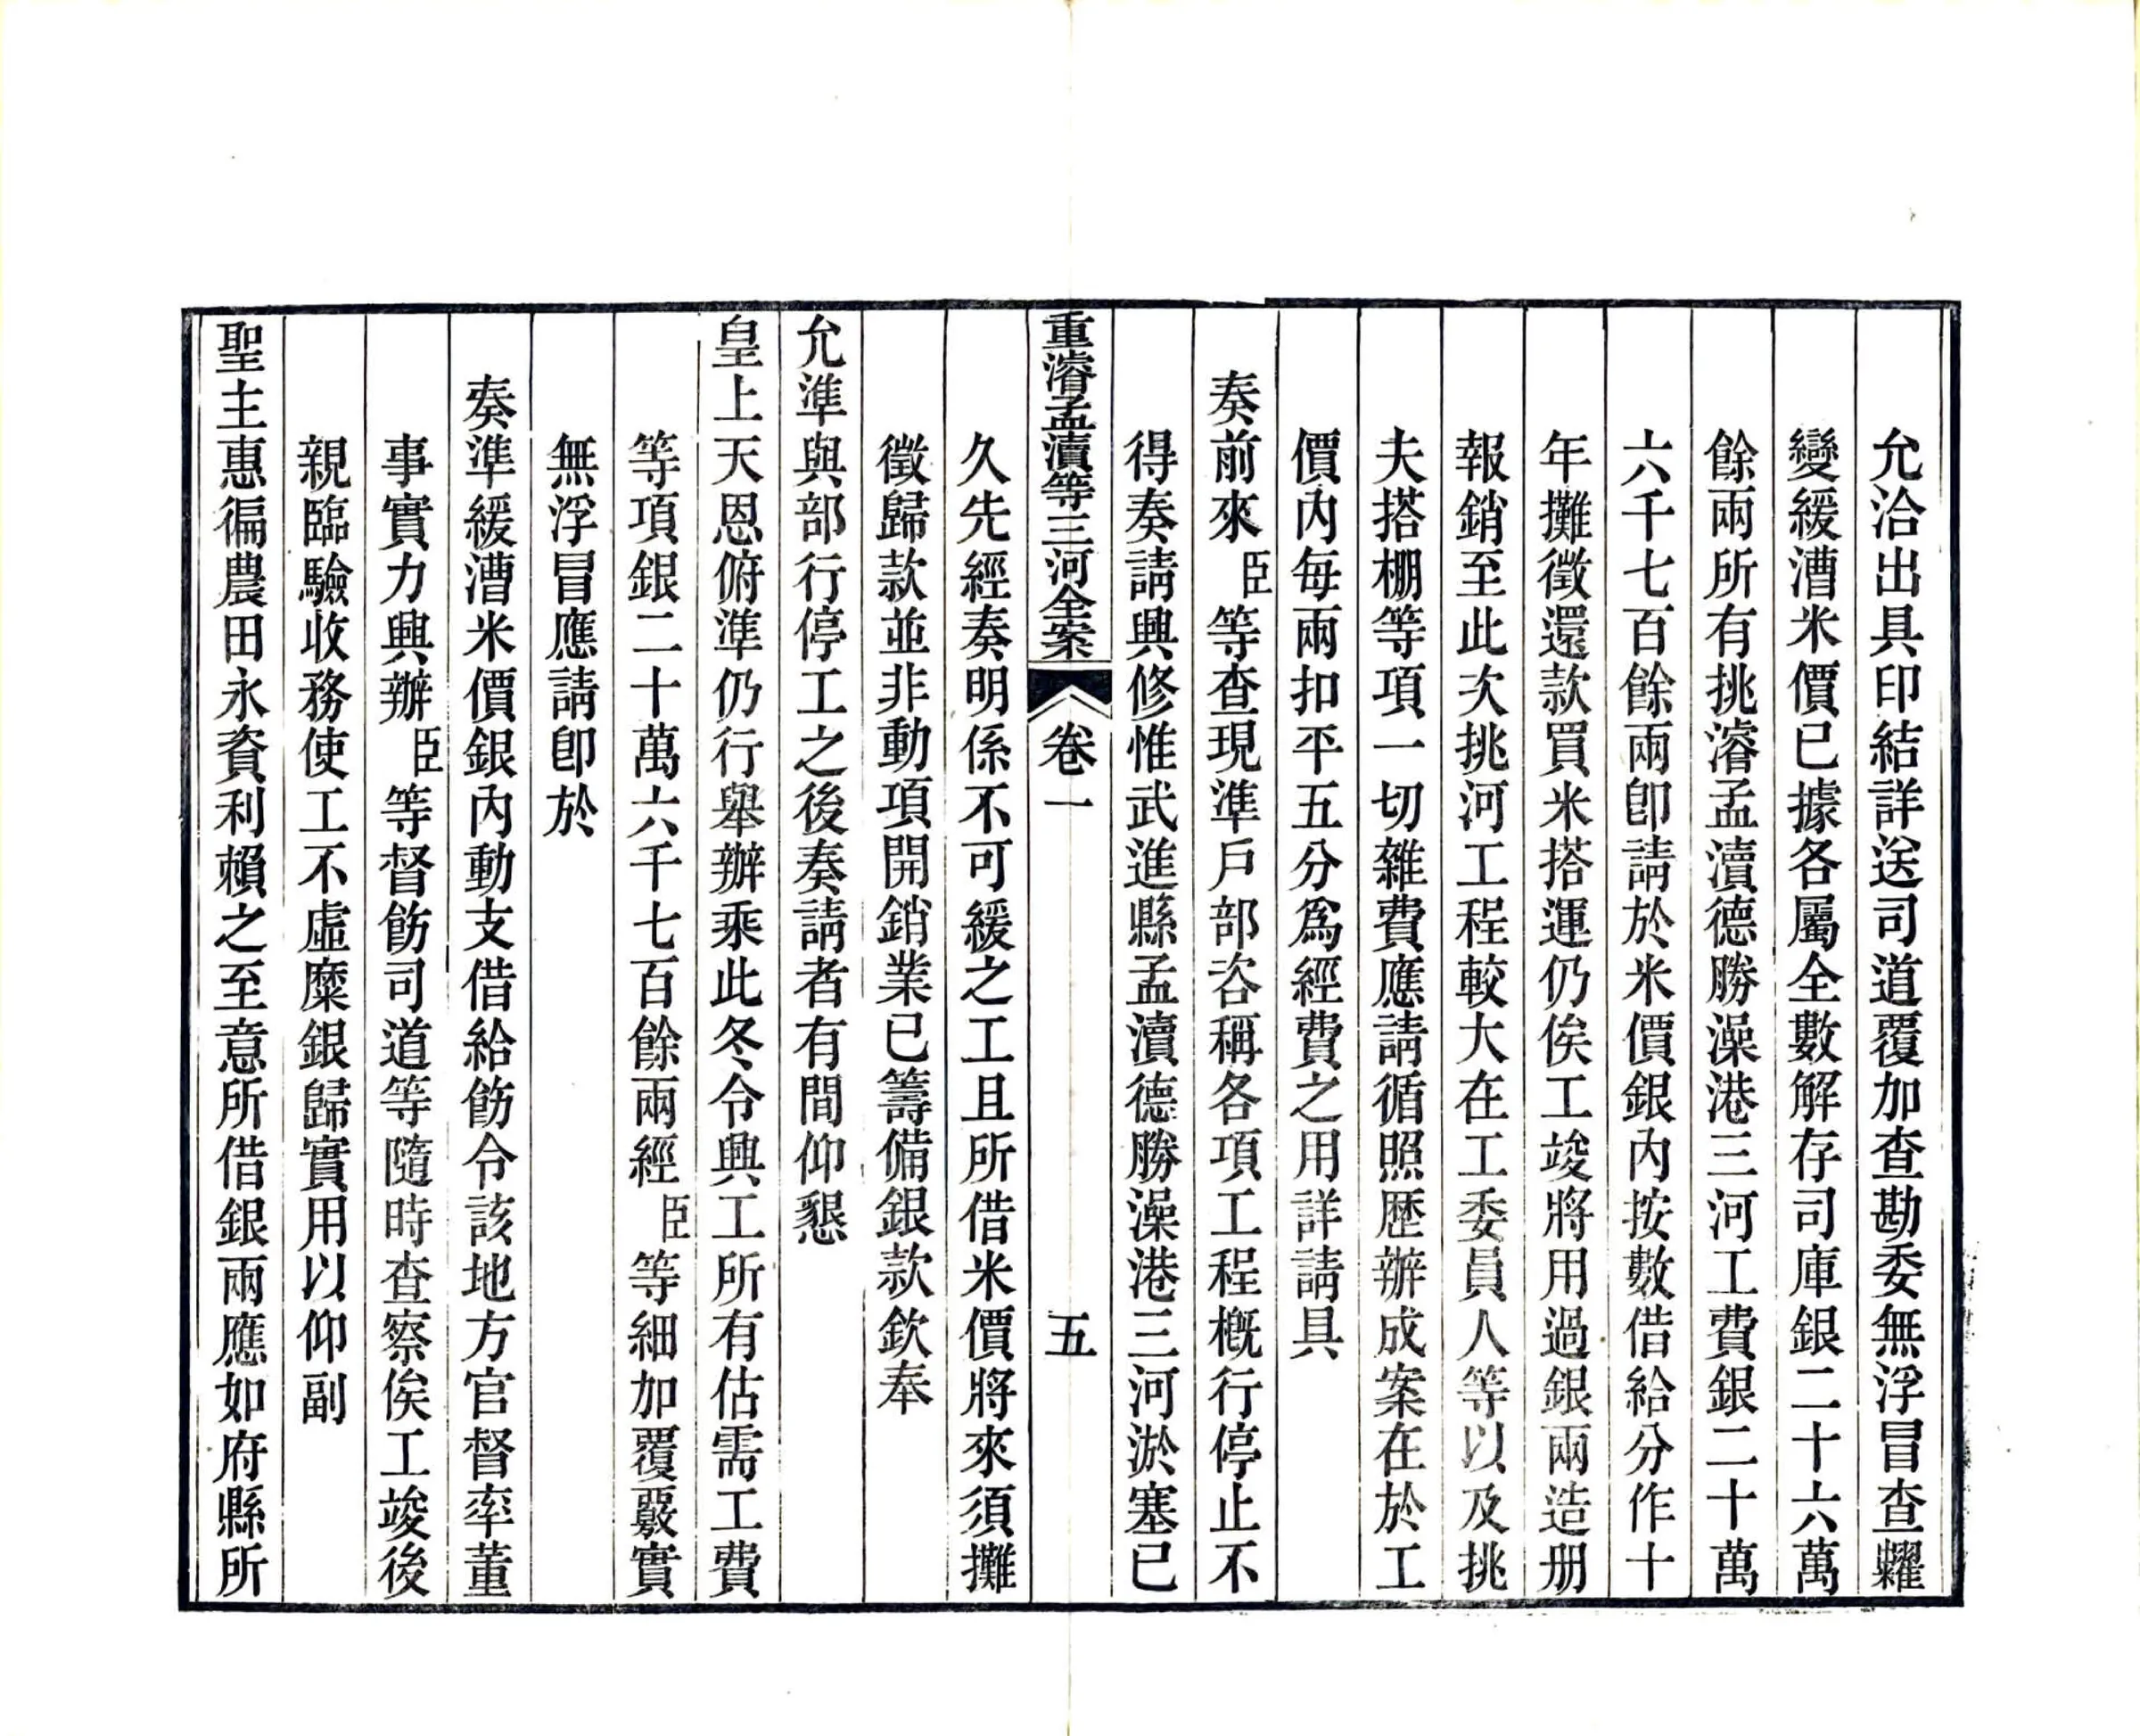 允洽出具印結詳送司道覆加查勘委無浮冒查糶
變緩漕米價已據各屬全數解存司庫銀二十六萬
餘兩所有挑濬孟瀆德勝澡港三河工費銀二十萬
六千七百餘兩卽請於米價銀內按數借給分作十
年攤徵還款買米搭運仍俟工竣將用過銀兩造册
報銷至此次挑河工程較大在工委員人等以及挑
夫搭棚等項一切雜費應請循照歷辦成案在於工
價內每兩扣平五分爲經費之用詳請具
奏前來臣等查現準戶部咨稱各項工程槪行停止不
得奏請興修惟武進縣孟瀆德勝澡港三河淤塞已
重濬孟瀆等三河全案 卷一 五
久先經奏明係不可緩之工且所借米價將來須攤
徵歸款並非動項開銷業已籌備銀款欽奉
允準與部行停工之後奏請者有間仰懇
皇上天恩俯準仍行舉辦乘此冬令興工所有估需工費
等項銀二十萬六千七百餘兩經臣等細加覆覈實
無浮冒應請卽於
奏準緩漕米價銀內動支借給飭令該地方官督率董
事實力興辦臣等督飭司道等隨時查察俟工竣後
親臨驗收務使工不虛糜銀歸實用以仰副
聖主惠徧農田永資利賴之至意所借銀兩應如府縣所